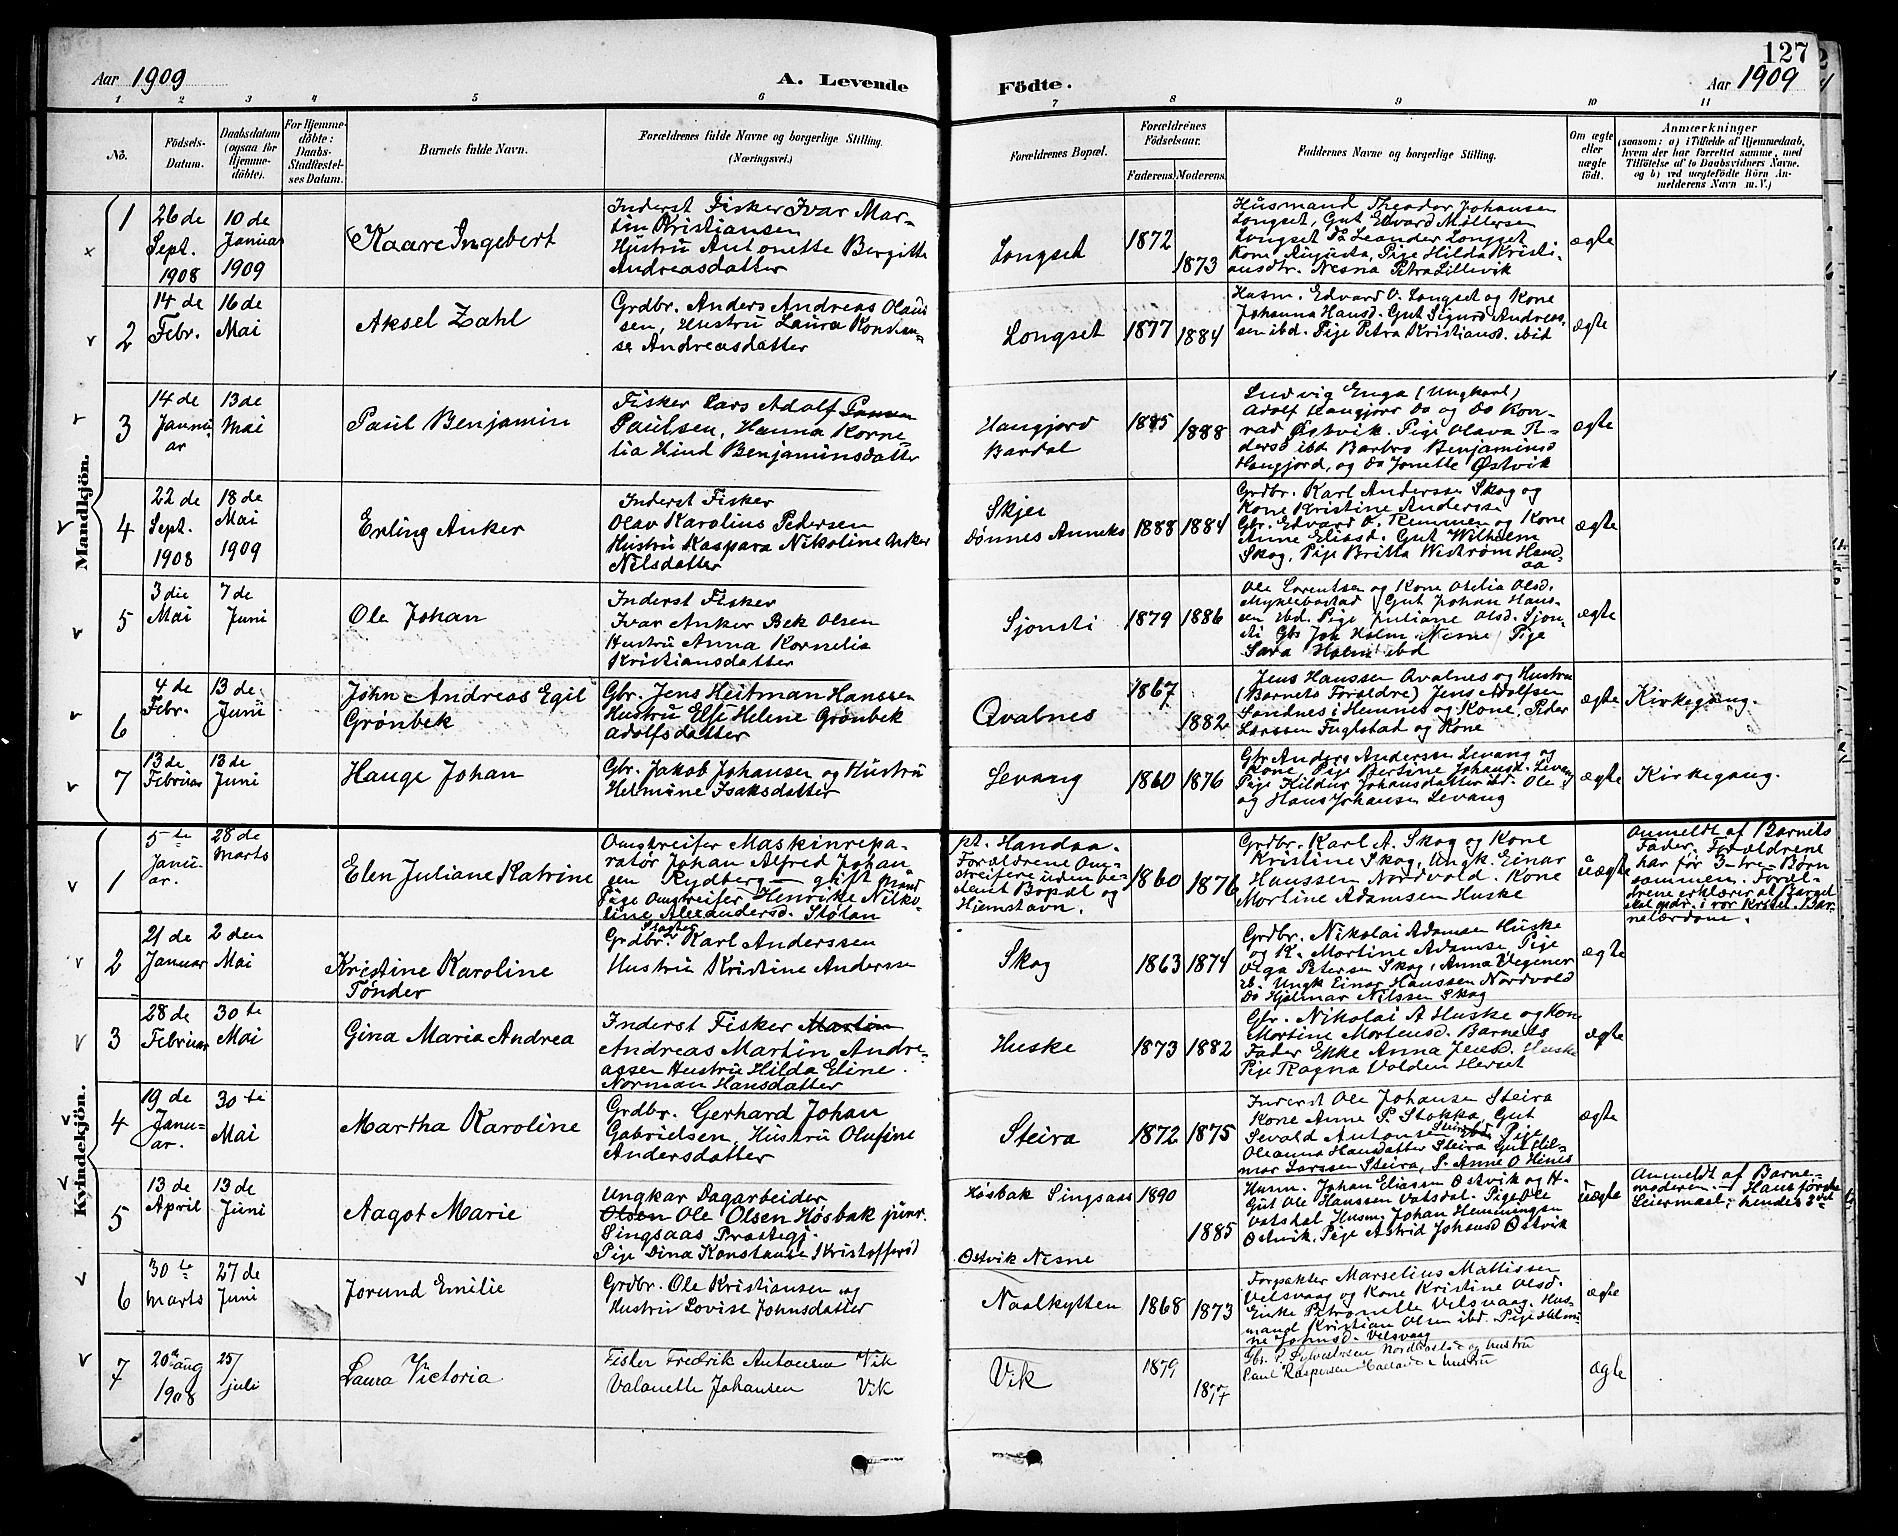 127
Aar 1909
A. Levende
Födte.
Aar 1909
1 2 3 4 5 6 7 8 9 10 11
No.
Födsels-
Datum.
Daabsdatum
(ogsaa for
Hjemme-
döbte).
For Hjemme-
döbte:
Daabs-
Stadfæstel-
ses Datum.
Barnets fulde Navn.
Forældrenes fulde Navne og borgerlige Stilling.
(Næringsvei.)
Forældrenes Bopæl.
Forældrenes
Födselsaar.
Faderens. Moderens.
Faddernes Navne og borgerlige Stilling.
Om ægte
eller
uægte
født.
Anmærkninger
(saasom: a) i Tilfælde af Hjemmedaab,
hvem der har forrettet samme, med
Tilföielse af to Daabsvidners Navne.
og b) ved uægtefödte Börn An-
melderens Navn m. V.)
Mandkjön.
1
26 de
Sept.
1908
10 de
Januar
1909
Kaare Ingebert
Inderst Fisker Ivar Mar-
tin Kristiansen
Hustru Antonette Bergitte
Andreasdatter
Longset
1872
1873
Husmand Theodor Johansen
Longset, Gut Edvard Møllersen
Longset Do Leander Longset
Kone Augusta, Pige Hilda Kristi-
ansdtr. Nesna Petra Lillevik
ægte
2
14 de
Febr.
16 de
Mai
Aksel Zahl
Grdbr. Anders Andreas Olaus
sen, Hustru Laura Konstan-
se Andreasdatter
Longset
1877
1884
Husm. Edvard O. Longset og Kone
Johanna Hansd. Gut Sigurd Andreas-
sen ibd. Pige Petra Kristiansd. ibid
ægte
3
14 de
Janu-
ar
13 de
Mai
Paul Benjamin
Fisker Lars Adolf
Paulsen, Hanna Korne-
lia Hind Benjaminsdatter
Haugjord
Bardal
1885
1888
Ludvig Enga (Ungkarl)
Adolf Haugjord Do og Do Kon-
rad Østvik. Pige Olava
dersd ibd Barbro Benjaminsd
Haugjord, og do Jonette Østvik
ægte
4
22 de
Sept.
1908
18 de
Mai
1909
Erling Anker
Inderst Fisker
Olav Karolius Pedersen
Hustru Kaspara Nikoline Anker
Nilsdatter
Skjei
Dønnes Anneks
1888
1884
Grdbr. Karl Anderssen Skog og
Kone Kristine Anderssen
Gbr. Edvard O. Remmen og Kone
Anne Eliasd. Gut Wilhelm
Skog, Pige Britta Wistrøm Hand-
aa
ægte
5
3 die
Mai
7 de
Juni
Ole Johan
Inderst Fisker
Ivar Anker Bek Olsen
Hustru Anna Kornelia
Kristiansdatter
Sjonsti
1879
1886
Ole Lorentsen og Kone Otelia Olsd.
Myklebostad Gut Johan Hans-
sen ibd. Pige Juliane Olsd. Sjon-
sti Gbr Joh Holm Nesne, Pige
Sara Holm ibd
ægte
6
4 de
Febr.
13 de
Juni
John Andreas Egil
Grønbek
Gbr. Jens Heitman Hanssen
Hustru Else Helene Grønbek
Adolfsdatter
Qvalnes
1867
1882
Jens Hanssen Qvalnes og Hustru
(Barnets Forældre) Jens Adolfsen
Sandnes i Hemnes og Kone, Peder
Larssen Fuglstad og Kone
ægte
Kirkegang.
7
13 de
Februar
13 de
Juni
Hauge Johan
Gbr. Jakob Johansen og Hustru
Helmine Isaksdatter
Levang
1860
1876
Gbr Anders Anderssen Levang og
Kone, Pige Bertine Johansd. Levang
Pige Hildur Johansdatter ibd. Ole
og Hans Johansen Levang
ægte
Kirkegang.
Kvindekjön.
1
5 te
Janu-
ar.
28 de
Marts
Elen Juliane Katrine
Omstreifer Maskinrepa-
ratør Johan Alfred Johan
sen Rydberg - gift Mand
Pige Omstreifer Henrikke Niko-
line Alexandersd. Stølan
pt. Handaa.
Forældrene Om-
streifere uden be-
stemt Bopæl og
Hjemstavn.
1860
1876
Grdbr. Karl A. Skog og Kone
Kristine Skog, Ungk. Einar
Hanssen Nordvold. Kone
Mortine Adamsen Huske
uægte
Anmeldt af Barnets
Fader. Forældrene
har før 3-tre- Børn
sammen. Foræl-
drene erklærer at Barnet
skal opdr. i vor Kristel. Bar-
nelærdom.
2
21 de
Januar
2 den
Mai
Kristine Karoline
Tønder
Grdbr. Karl Anderssen
Hustru Kristine Anderssen
Skog
1863
1874
Grdbr. Nikolai Adamsen Huske
og K. Mortine Adamsen Pige
Olga Petersen Skog, Anna Wegener
ib. Ungk Einar Hanssen Nordvold
Do Hjalmar Nilssen Skog
ægte
3
28 de
Februar
30 te
Mai
Gina Maria Andrea
Inderst Fisker Martin
Andreas Martin Andre-
assen Hustru Hilda Eline
Norman Hansdatter
Huske
1873
1882
Gbr. Nikolai A Huske og Kone
Mortine Mortensd. Barnets
Fader Enke Anna Jensd. Huske
Pige Ragna Volden Herset
ægte
4
19 de
Janu-
ar.
30 te
Mai
Martha Karoline
Grdbr. Gerhard Johan
Gabrielsen, Hustru Olufine
Andersdatter
Steira
1872
1875
Inderst Ole Johansen Steira
Kone Anne P. Stokka, Gut
Sevald Antonsen Steira, Pige
Oleanna Hansdatter Steira Gut Hil-
mar Larssen Steira, P. Anne O Hines
ægte
5
13 de
April
13 de
Juni
Aagot Marie
Ungkar Dagarbeider
Olsen Ole Olsen Høsbak junr.
Singsaas Prestegj.
Pige Dina Konstanse Kristoffersd
Høsbak Singsaas
Østvik Nesne
1890
1885
Husm. Johan Eliassen Østvik og H-
Gut Ole Hanssen Vatsdal. Pige Ole
Vatshal Husm. Johan Hemmingsen
Østvik, Pige Astrid Johansd Østvik
uægte
Anmeldt af Barne-
moderen. - Hans første
Leiermaal; hendes 2det
6
30 te
Marts
27 de
Juni
Jorund Emilie
Grdbr. Ole Kristiansen og
Hustru Lovise Johnsdatter
Naalkytten
1868
1873
Forpakter Marselius Mattissen
Velsvaag og Kone Kristine Olsd.
Enke Petronelle Velsvaag. Hus-
mand Kristian Olsen ibd. Pige Helmi-
ne Johnsd. Velsvaag
ægte
7
20 aug
1908
25/
juli
Laura Victoria
Fisker Fredrik Antonsen Vik
Valanette Johansen Vik
Vik
1879
1877
Gbr. P. Sylvestersen og Hustru
Paul Kaspersen Hustru
ægte